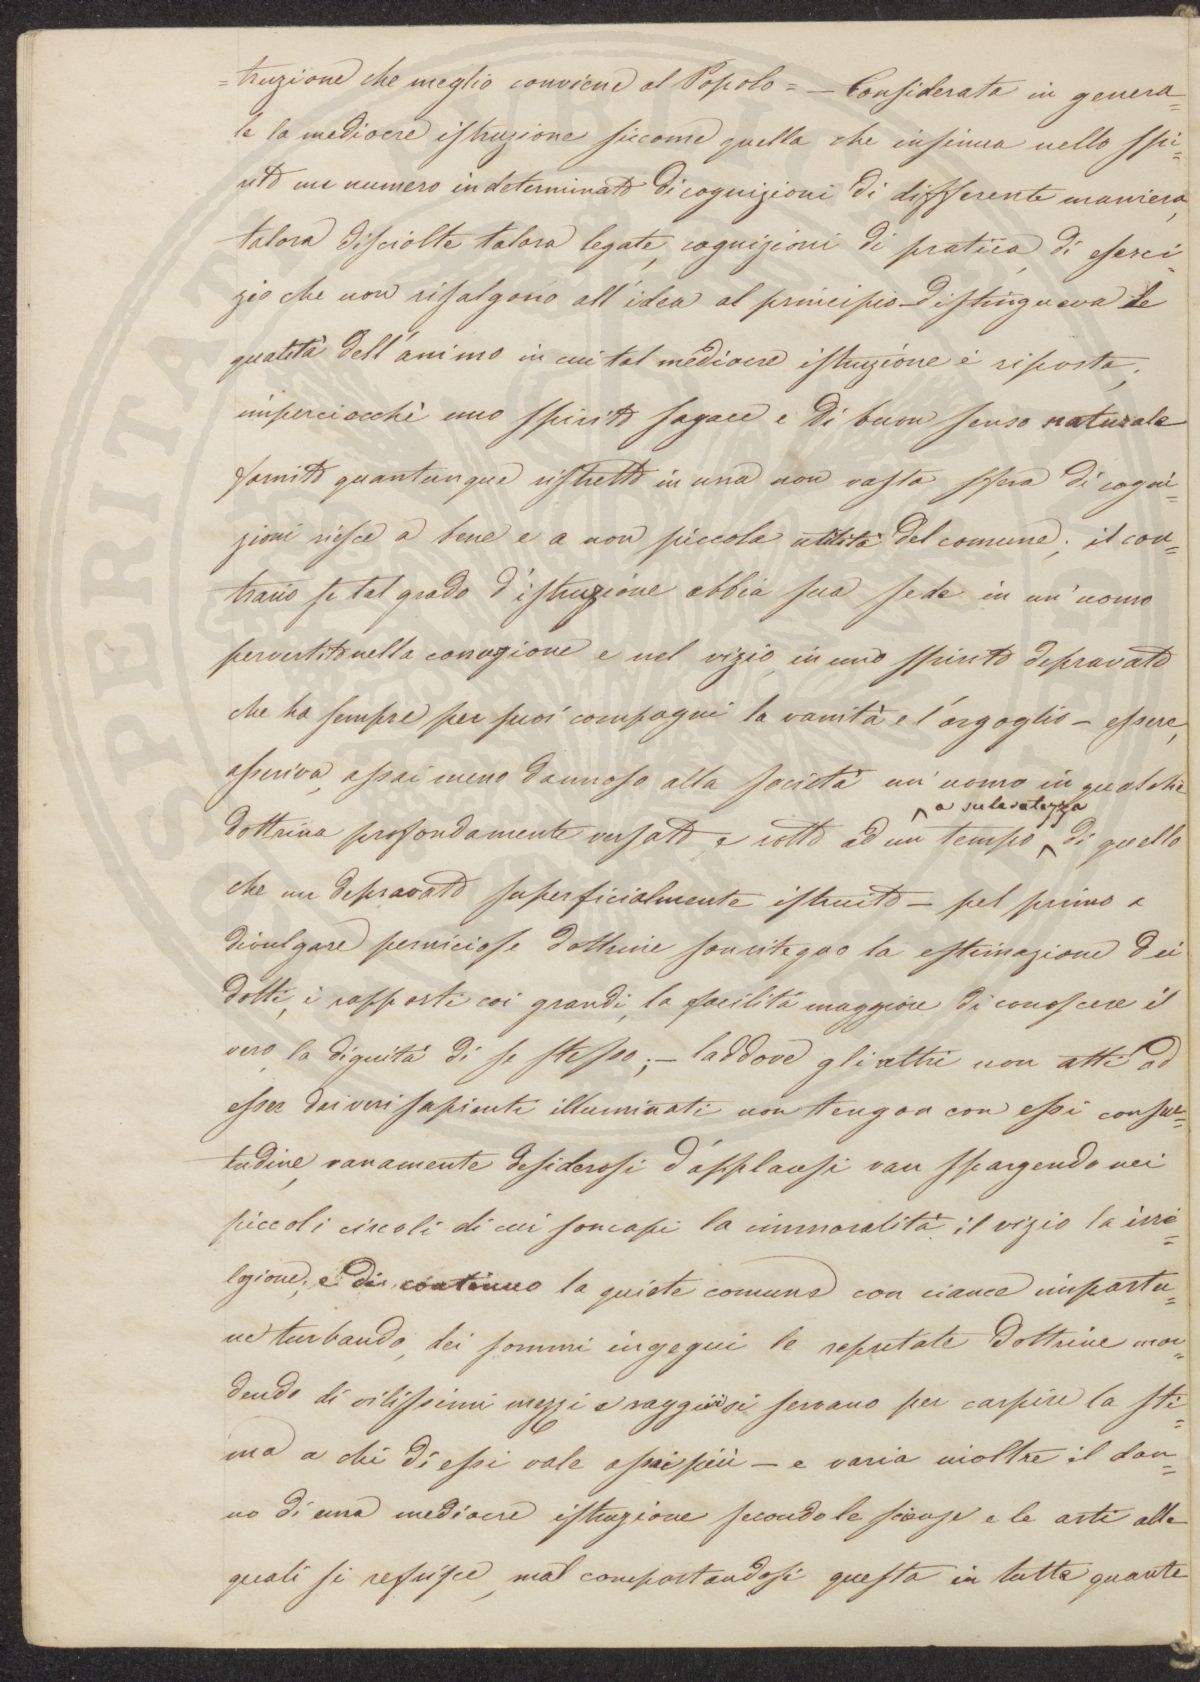 =truzione che meglio conviene al Popolo = — Considerata in genera=
le la mediocre istruzione siccome quella che insinua nello spi=
rito un numero indeterminato di cognizioni di differente maniera,
talora disciolte talora legate, cognizioni di pratica, di eserci=
zio che non risalgono all'idea al principio — distingueva le
qualità dell'animo in cui tal mediocre istruzione è riposta;
imperciocchè uno spirito sagace e di buon senso naturale
fornito quantunque ristretto in una non vasta sfera di cogni=
zioni riesce a bene e a non piccola utilità del comune; il con=
trario se tal grado d'istruzione abbia sua sede in un'uomo
pervertito nella corruzione e nel vizio, in uno spirito depravato
che ha sempre per suoi compagni la vanità e l'orgoglio — essere,
asseriva, assai meno dannoso alla società un'uomo in qualche
dottrina profondamente versato, e rotto ad un tempo a sceleratezza di quello
che un depravato superficialmente istruito — pel primo a
divulgare perniciose dottrine son ritegno la estimazione dei
dotti, i rapporti coi grandi, la facilità maggiore di conoscere il
vero, la dignità di se stesso; — laddove gli altri non atti ad
esser dai veri sapienti illuminati non tengon con essi consue=
tudine, vanamente desiderosi d'applausi van spargendo nei
piccoli circoli di cui son capi la immoralità il vizio la irre=
ligione, e di continuo la quiete comune con ciance importu=
ne turbando, dei sommi ingegni le reputate dottrine mor=
dendo di vilissimi mezzi e raggiri si servano per carpire la sti=
ma a chi di essi vale assai più — e varia inoltre il dan=
no di una mediocre istruzione secondo le scienze e le arti alle
quali si referisce, mal comportandosi questa in tutte quante